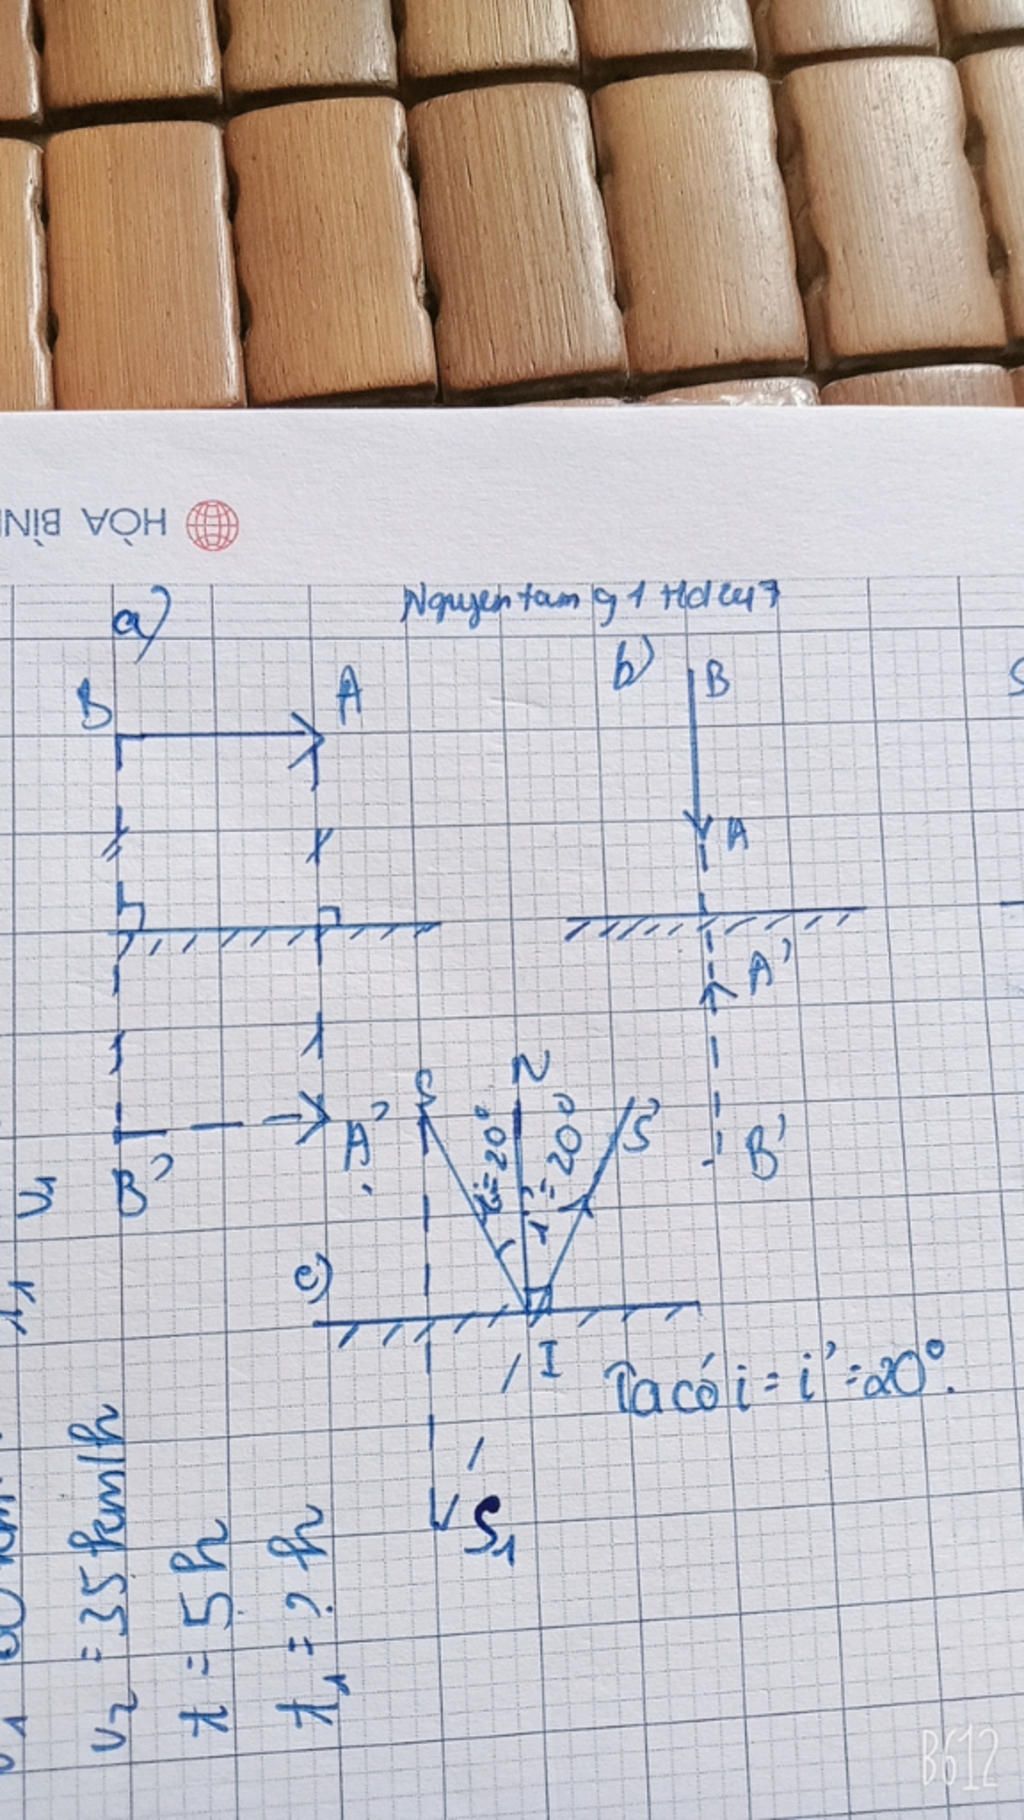 HÒA BÌN
a)
Nguyentam g 1 Hdcu7
b)
B
A
B
A
A'
B'
A'
B'
S
N
S'
i=20°
i'=20°
c)
I
Ta có i = i' = 20°.
S1
v1
v2 = 35 km/h
t = 5 h
t1 = ? h
B612